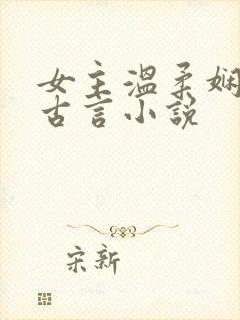 女主温柔娴
古言小说
宋新